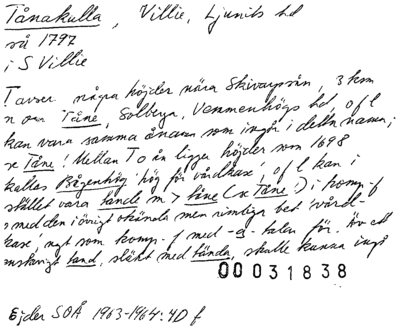 Tånakulla, Villie, Ljunits hd
så 1797
i S Villie
T avser några höjder nära Skivarpsån, 3 km
n om Tåne, Solberga, Vemmenhögs hd, o f l
kan vara samma ånamn som ingår i detta namn;
se Tåne! Mellan T o ån ligger höjder som 1698
kallas Bågenhög 'hög för vårdkase', o f l kan i
stället vara tande m > tåne (se Tåne) i komp. f
med den i övrigt okända men rimliga bet 'vård-
kase', ngt som komp. f med -g- talar för. Äv ett
tand, släkt med tända, skulle kunna ingå
00031838
Ejder SOÅ 1963-1964: 4D f